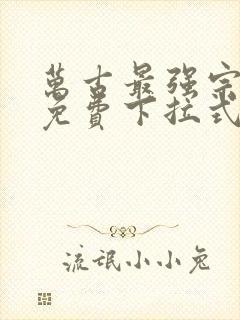 萬古最强宗
免費下拉式
流氓小小兔